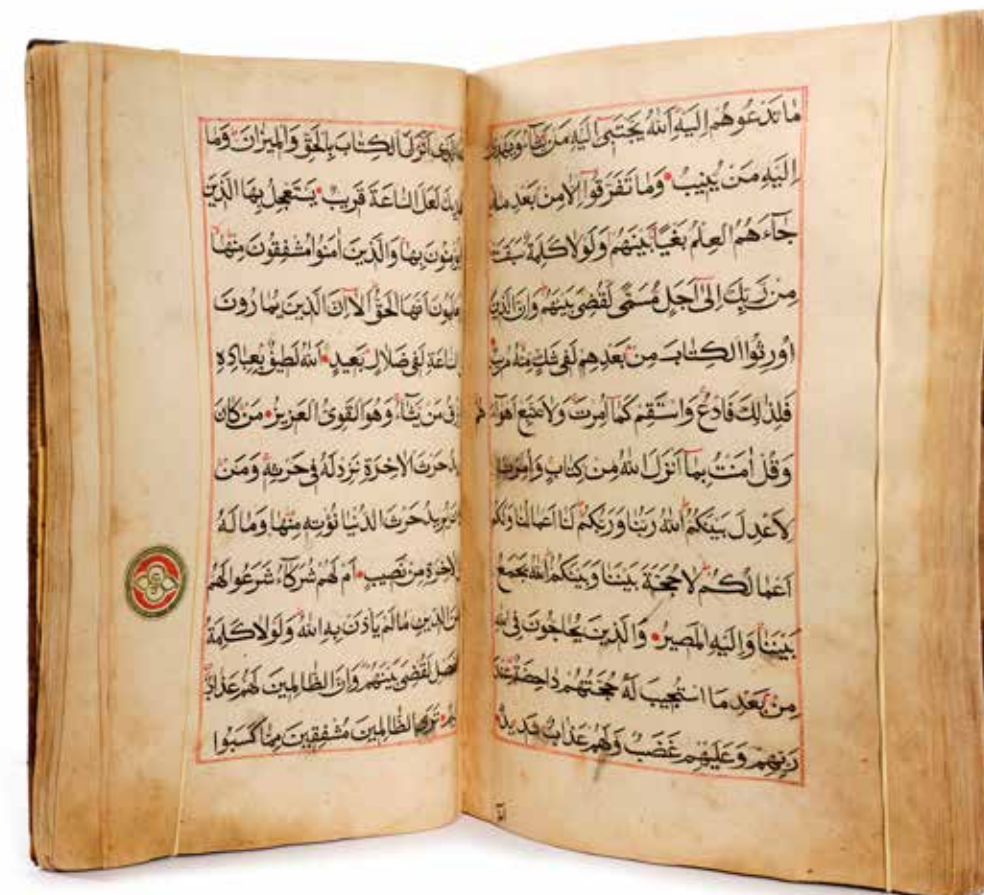 مَا تَدْعُوهُمْ اِلَيْهِ اَللهُ يَجْتَبِى اِلَيْهِ مَنْ يَشَاءُ وَيَهْدِى
اِلَيْهِ مَنْ يُنِيبُ وَمَا تَفَرَّقُوا اِلَّا مِنْ بَعْدِ مَا
جَاءَهُمُ العِلْمُ بَغْيًا بَيْنَهُمْ وَلَوْلَا كَلِمَةٌ سَبَقَتْ
مِنْ رَبِّكَ اِلَى اَجَلٍ مُسَمًّى لَقُضِىَ بَيْنَهُمْ وَاِنَّ الَّذِينَ
اُورِثُوا الكِتَابَ مِنْ بَعْدِهِمْ لَفِى شَكٍّ مِنْهُ مُرِيبٍ
فَلِذٰلِكَ فَادْعُ وَاسْتَقِمْ كَمَا اُمِرْتَ وَلَا تَتَّبِعْ اَهْوَاءَهُمْ
وَقُلْ اٰمَنْتُ بِمَا اَنْزَلَ اللهُ مِنْ كِتَابٍ وَاُمِرْتُ
لِاَعْدِلَ بَيْنَكُمُ اَللهُ رَبُّنَا وَرَبُّكُمْ لَنَا اَعْمَالُنَا وَلَكُمْ
اَعْمَالُكُمْ لَا حُجَّةَ بَيْنَنَا وَبَيْنَكُمْ اَللهُ يَجْمَعُ
بَيْنَنَا وَاِلَيْهِ المَصِيرُ وَالَّذِينَ يُحَاجُّونَ فِى اللهِ
مِنْ بَعْدِ مَا اسْتُجِيبَ لَهُ حُجَّتُهُمْ دَاحِضَةٌ عِنْدَ
رَبِّهِمْ وَعَلَيْهِمْ غَضَبٌ وَلَهُمْ عَذَابٌ شَدِيدٌ
اَنْزَلَ الكِتَابَ بِالحَقِّ وَالمِيزَانَ وَمَا
لَعَلَّ السَّاعَةَ قَرِيبٌ يَسْتَعْجِلُ بِهَا الَّذِينَ
يُؤْمِنُونَ بِهَا وَالَّذِينَ اٰمَنُوا مُشْفِقُونَ مِنْهَا
اَنَّهَا الحَقُّ اَلَا اِنَّ الَّذِينَ يُمَارُونَ
لَفِى ضَلَالٍ بَعِيدٍ اَللهُ لَطِيفٌ بِعِبَادِهِ
مَنْ يَشَاءُ وَهُوَ القَوِىُّ العَزِيزُ مَنْ كَانَ
حَرْثَ الاٰخِرَةِ نَزِدْ لَهُ فِى حَرْثِهِ وَمَنْ
يُرِيدُ حَرْثَ الدُّنْيَا نُؤْتِهِ مِنْهَا وَمَا لَهُ
مِنْ نَصِيبٍ اَمْ لَهُمْ شُرَكَاءُ شَرَعُوا لَهُمْ
مِنَ الدِّينِ مَا لَمْ يَأْذَنْ بِهِ اللهُ وَلَوْلَا كَلِمَةُ
الفَصْلِ لَقُضِىَ بَيْنَهُمْ وَاِنَّ الظَّالِمِينَ لَهُمْ عَذَابٌ
تَرَى الظَّالِمِينَ مُشْفِقِينَ مِمَّا كَسَبُوا